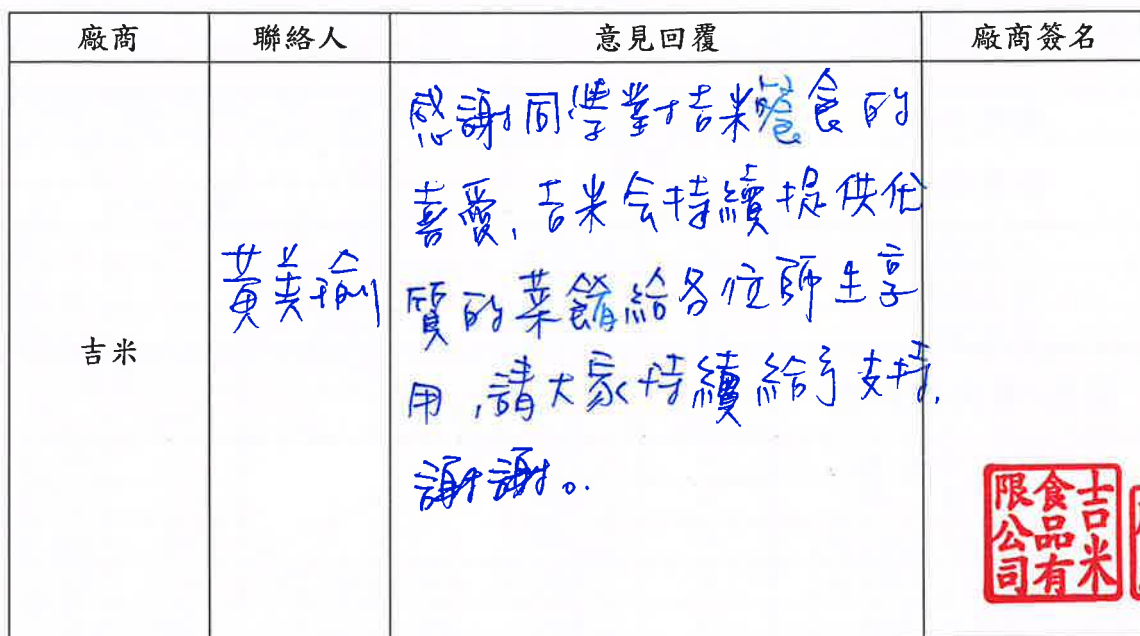 廠商 聯絡人 意見回覆 廠商簽名
吉米
黃美瑜
感謝同學對吉米餐食的
喜愛,吉米会持續提供优
質的菜餚給各位師生享
用,請大家持續給予支持,
謝謝。
吉米
食品有
限公司